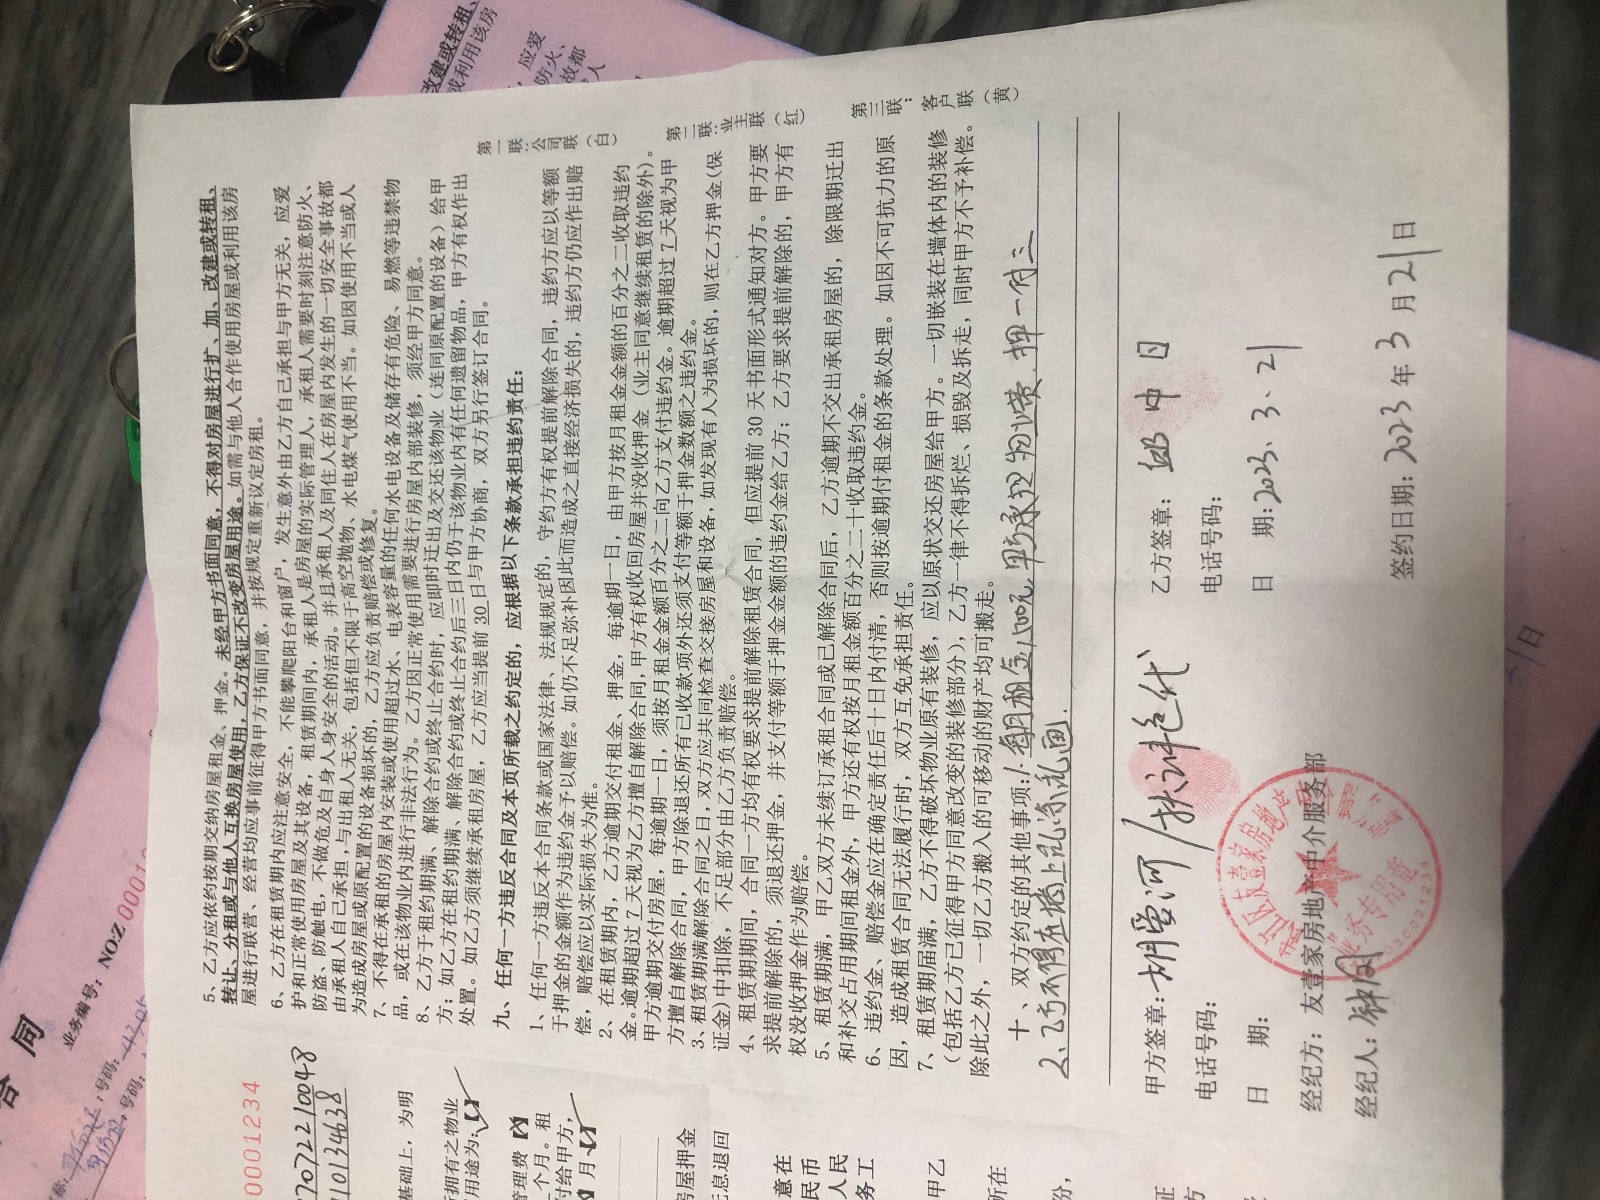 5、乙方应依约按期交纳房屋租金、押金。未经甲方书面同意，不得对房屋进行扩、加、改建或转租、
转让、分租或与他人互换房屋使用，乙方保证不改变房屋用途。如需与他人合作使用房屋或利用该房
屋进行联营、经营均应事前征得甲方书面同意，并按规定重新议定房租。
6、乙方在租赁期内应注意安全，不能攀爬阳台和窗户，发生意外由乙方自己承担与甲方无关，应爱
护和正常使用房屋及其设备，租赁期间内，承租人是房屋的实际管理人，承租人需要时刻注意防火、
防盗、防触电，不做危及自身人身安全的活动。并且承租人及同住人在房屋内发生的一切安全事故都
由承租人自己承担，与出租人无关，包括但不限于高空抛物、水电煤气使用不当。如因使用不当或人
为造成房屋或原配置的设备损坏的，乙方应负责赔偿或修复。
7、不得在承租的房屋内安装或使用超过水、电表容量的任何水电设备及储存有危险、易燃等违禁物
品，或在该物业内进行非法行为。乙方因正常使用需要进行房屋内部装修，须经甲方同意。
8、乙方于租约期满、解除合约或终止合约时，应即时迁出及交还该物业（连同原配置的设备）给甲
方；如乙方在租约期满、解除合约或终止合约后三日内仍于该物业内有任何遗留物品，甲方有权作出
处置。如乙方须继续承租房屋，乙方应当提前 30 日与甲方协商，双方另行签订合同。
九、任何一方违反合同及本页所载之约定的，应根据以下条款承担违约责任：
1、任何一方违反本合同条款或国家法律、法规规定的，守约方有权提前解除合同，违约方应以等额
于押金的金额作为违约金予以赔偿。如仍不足弥补因此而造成之直接经济损失的，违约方仍应作出赔
偿，赔偿应以实际损失为准。
2、在租赁期内，乙方逾期交付租金、押金，每逾期一日，由甲方按月租金金额的百分之二收取违约
金。逾期超过 7 天视为乙方擅自解除合同，甲方有权收回房屋并没收押金（业主同意继续租赁的除外）。
甲方逾期交付房屋，每逾期一日，须按月租金金额百分之二向乙方支付违约金。逾期超过 7 天视为甲
方擅自解除合同，甲方除退还所有已收款项外还须支付等额于押金数额之违约金。
3、租赁期满解除合同之日，双方应共同检查交接房屋和设备，如发现有人为损坏的，则在乙方押金（保
证金）中扣除，不足部分由乙方负责赔偿。
4、租赁期期间，合同一方均有权要求提前解除租赁合同，但应提前 30 天书面形式通知对方。甲方要
求提前解除的，须退还押金，并支付等额于押金金额的违约金给乙方；乙方要求提前解除的，甲方有
权没收押金作为赔偿。
5、租赁期满，甲乙双方未续订承租合同或已解除合同后，乙方逾期不交出承租房屋的，除限期迁出
和补交占用期间租金外，甲方还有权按月租金额百分之二十收取违约金。
6、违约金、赔偿金应在确定责任后十日内付清，否则按逾期付租金的条款处理。如因不可抗力的原
因，造成租赁合同无法履行时，双方互免承担责任。
7、租赁期届满，乙方不得破坏物业原有装修，应以原状交还房屋给甲方。一切嵌装在墙体内的装修
（包括乙方已征得甲方同意改变的装修部分），乙方一律不得拆烂、损毁及拆走，同时甲方不予补偿。
除此之外，一切乙方搬入的可移动的财产均可搬走。
十、双方约定的其他事项：1.每月租金1,100元 甲方承担物业费.押一付三
2、乙方不得在墙上乱涂乱画.
第一联：公司联（白）
第二联：业主联（红）
第三联：客户联（黄）
甲方签章：胡爱河
电话号码：
日 期：
乙方签章：
电话号码：
日 期：2023.3.21
经纪方：友壹家房地产中介服务部
经纪人：
签约日期：2023 年 3 月 21 日
业务专用章
0001234
合同
业务编号：NO:Z 0001
基础上，为明
所拥有之物业
用途为：
管理费
个月。租
付给甲方，
月
房屋押金
息退回
甲乙
所在
改建或转租、
或利用该房
，应爱
防火、
故都
人